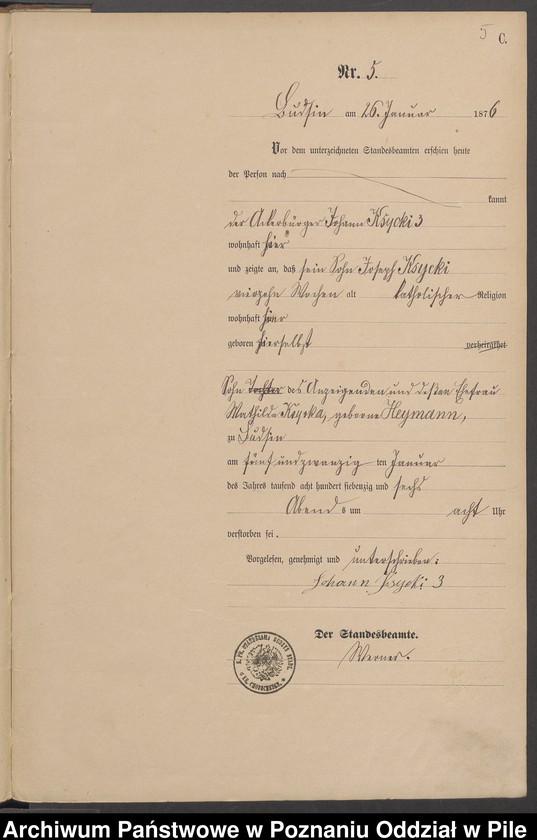 5
C.
Nr. 5.
Budsin am 26. Januar 1876
Vor dem unterzeichneten Standesbeamten erschien heute
der Person nach
kannt
der Ackerbürger Johann Ksycki 3
wohnhaft hier
und zeigte an, daß sein Sohn Joseph Ksycki
vierzehn Wochen alt katholischer Religion
wohnhaft hier
geboren hierselbst verheirathet
Sohn Tochter des Anzeigenden und dessen Ehefrau
Mathilde Ksycka, geborne Heymann,
zu Budsin
am fünf und zwanzig ten Januar
des Jahres tausend acht hundert siebenzig und sechs
Abends um acht Uhr
verstorben sei.
Vorgelesen, genehmigt und unterschrieben:
Johann Ksycki 3
Der Standesbeamte.
Werner.
Archiwum Państwowe w Poznaniu Oddział w Pile